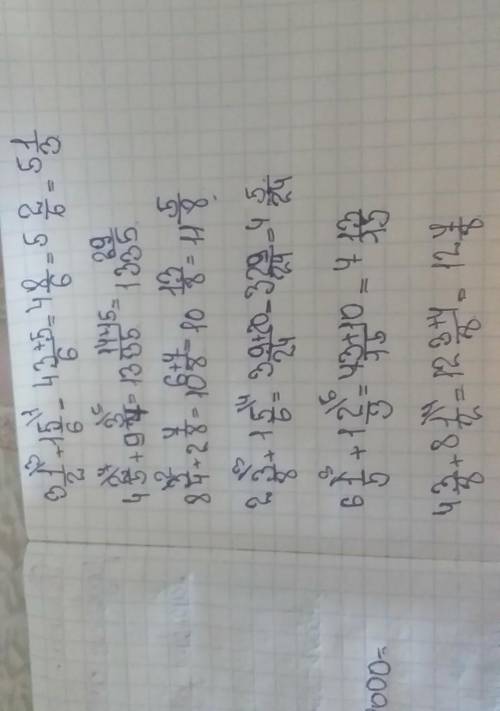 3 1/2 + 1 5/6 = 4 3+5/6 = 4 8/6 = 5 2/6 = 5 1/3
4 2/5 + 9 3/7 = 13 14+15/35 = 13 29/35
8 3/4 + 2 7/8 = 10 6+7/8 = 10 13/8 = 11 5/8
2 3/8 + 1 5/6 = 3 9+20/24 = 3 29/24 = 4 5/24
6 1/5 + 1 2/3 = 4 3+10/15 = 4 13/15
4 3/8 + 8 1/2 = 12 3+4/8 = 12 7/8
000=